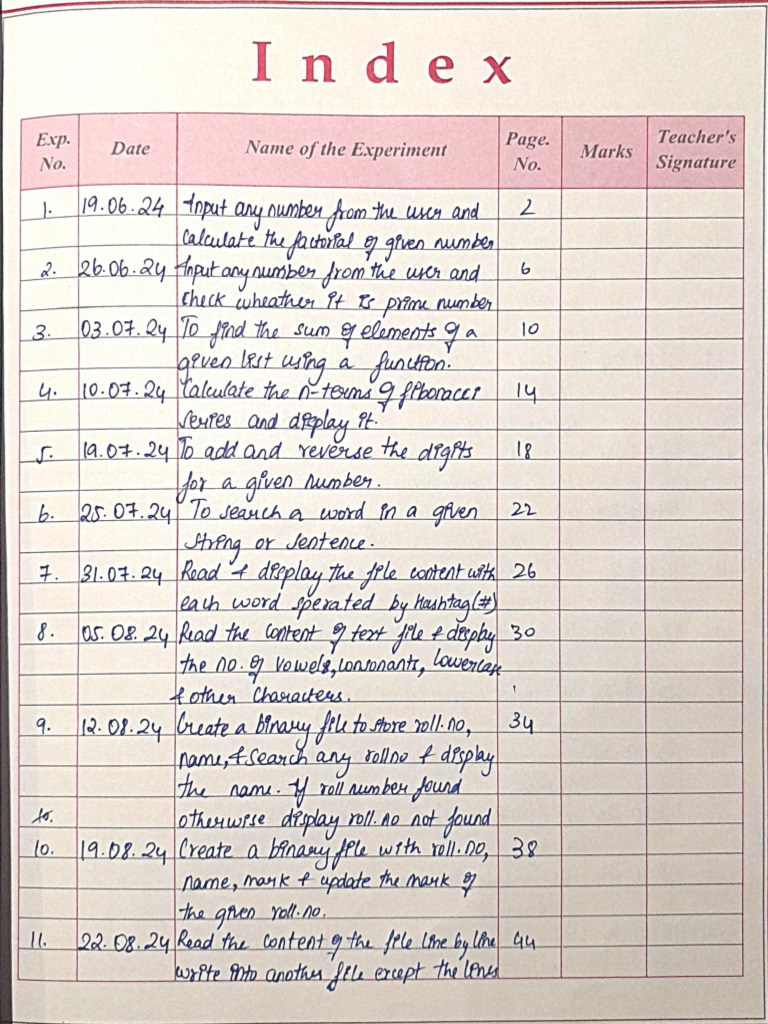 Index
Exp. No. Date Name of the Experiment Page. No. Marks Teacher's Signature
1. 19.06.24 Input any number from the user and 2
calculate the factorial of given number
2. 26.06.24 Input any number from the user and 6
check wheather it is prime number
3. 03.07.24 To find the sum of elements of a 10
given list using a function.
4. 10.07.24 Calculate the n-terms of fiboracci 14
series and display it.
5. 19.07.24 To add and reverse the digits 18
for a given number.
6. 25.07.24 To search a word in a given 22
string or sentence.
7. 31.07.24 Read & display the file content with 26
each word sperated by hashtag(#)
8. 05.08.24 Read the content of text file & display 30
the no. of vowels, consonants, lowercase
& other characters.
9. 12.08.24 Create a binary file to store roll.no, 34
name, & search any rollno & display
the name. If roll number found
10. otherwise display roll.no not found
10. 19.08.24 Create a binary file with roll.no, 38
name, mark & update the mark of
the given roll.no.
11. 22.08.24 Read the content of the file line by line 44
write into another file except the lines